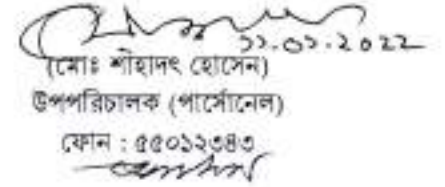 ১১.০১.২০২২
(মোঃ শাহাদৎ হোসেন)
উপপরিচালক (পার্সোনেল)
ফোন : ৫৫০১২৩৪৩